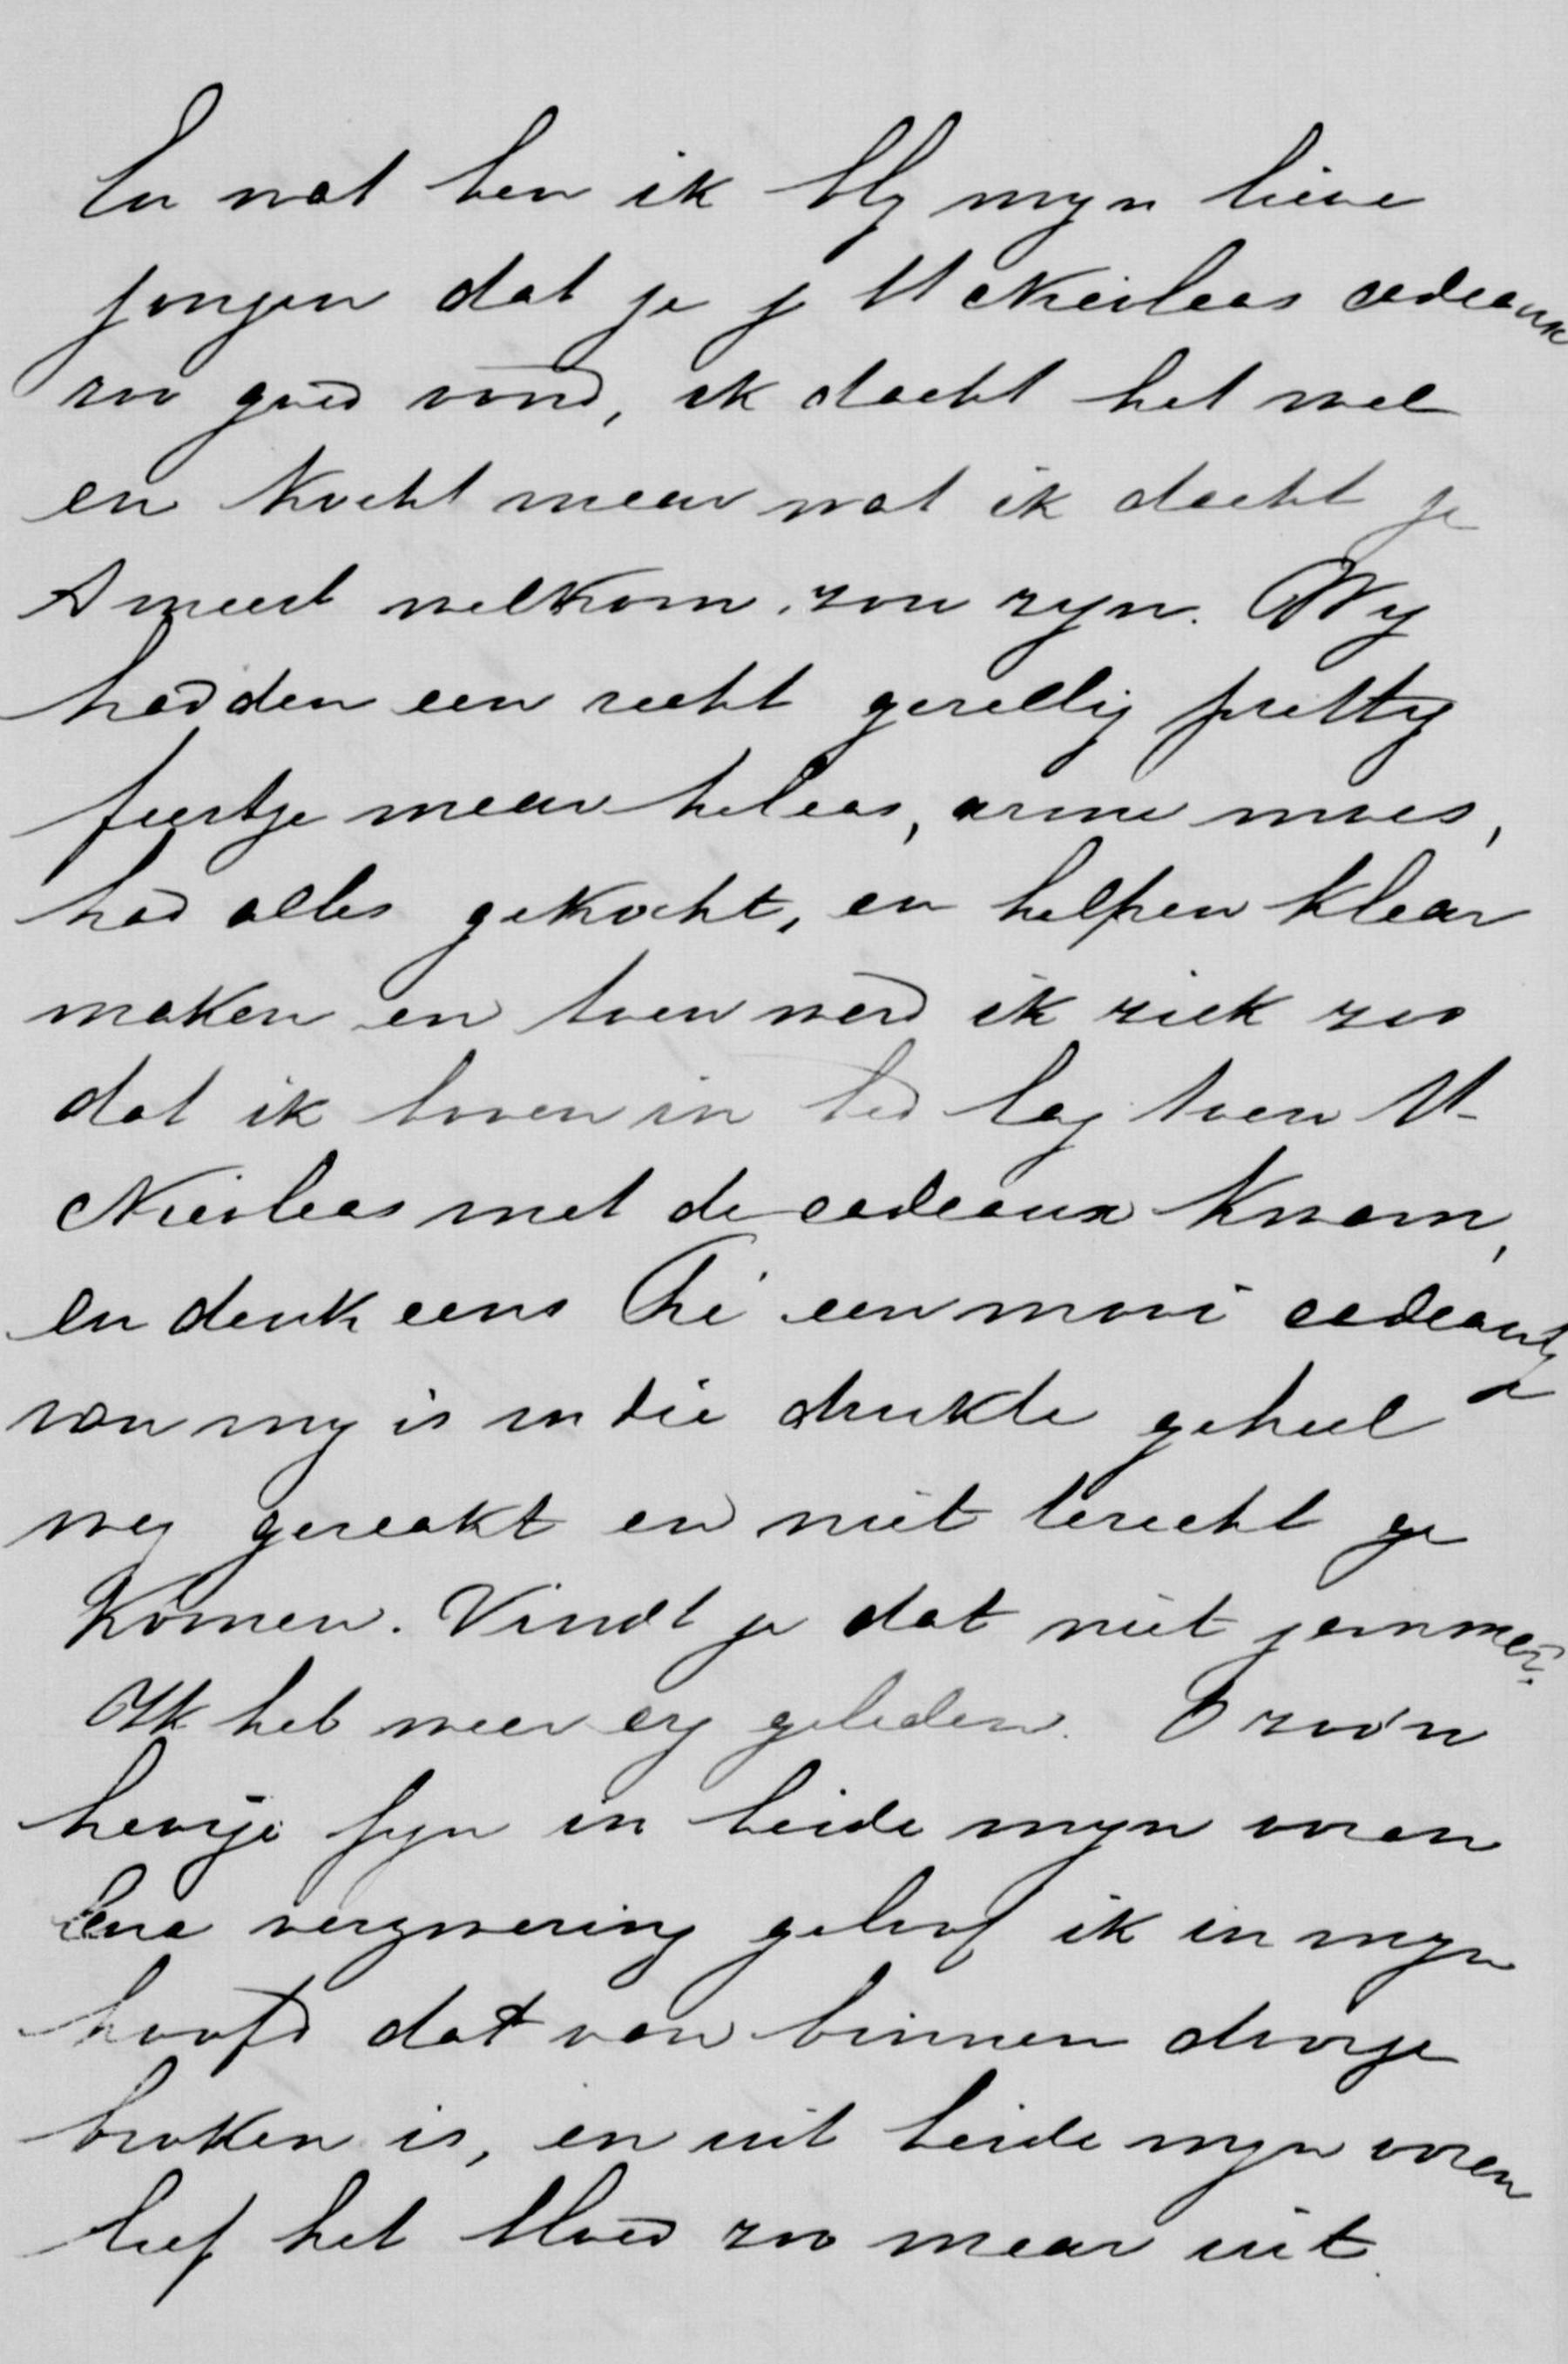 En wat ben ik bly myn lieve
jongen dat je je St Nicolaas cadeaux
zoo goed vond, ik dacht het wel
en kocht maar wat ik dacht je
t meest welkom zou zyn. Wy
hadden een recht gezellig prettig
feestje maar helaas, arme moes,
had alles gekocht, en helpen klaar
maken en toen werd ik ziek zoo
dat ik boven in bed lag toen St
Nicolaas met de cadeaux kwam,
en denk eens Ché een mooi cadeautje
van my is in die drukte geheel
weg geraakt en niet terecht ge
komen. Vindt je dat niet jammer?
Ik heb weer erg geleden. O zoo'n
hevige pyn in beide myn ooren
Eene verzwering geloof ik in myn
hoofd dat van binnen doorge
broken is, en uit beide myn ooren
liep het bloed zoo maar uit.